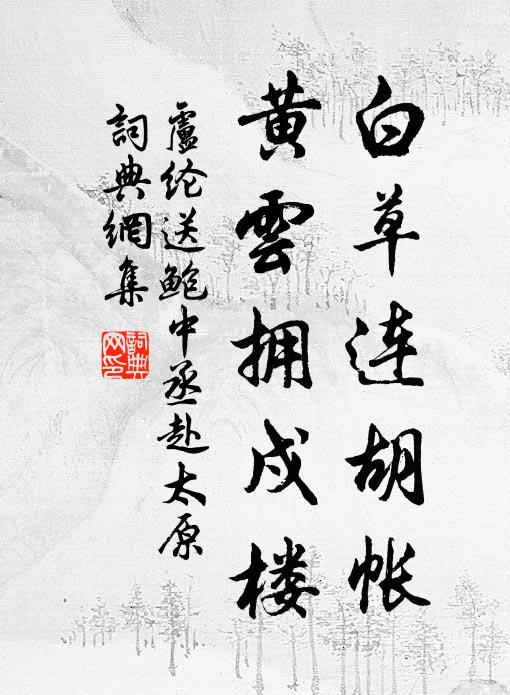 白草连胡帐
黄雲拥戍楼
盧纶送鲍中丞赴太原
詞典網集
詞典网印